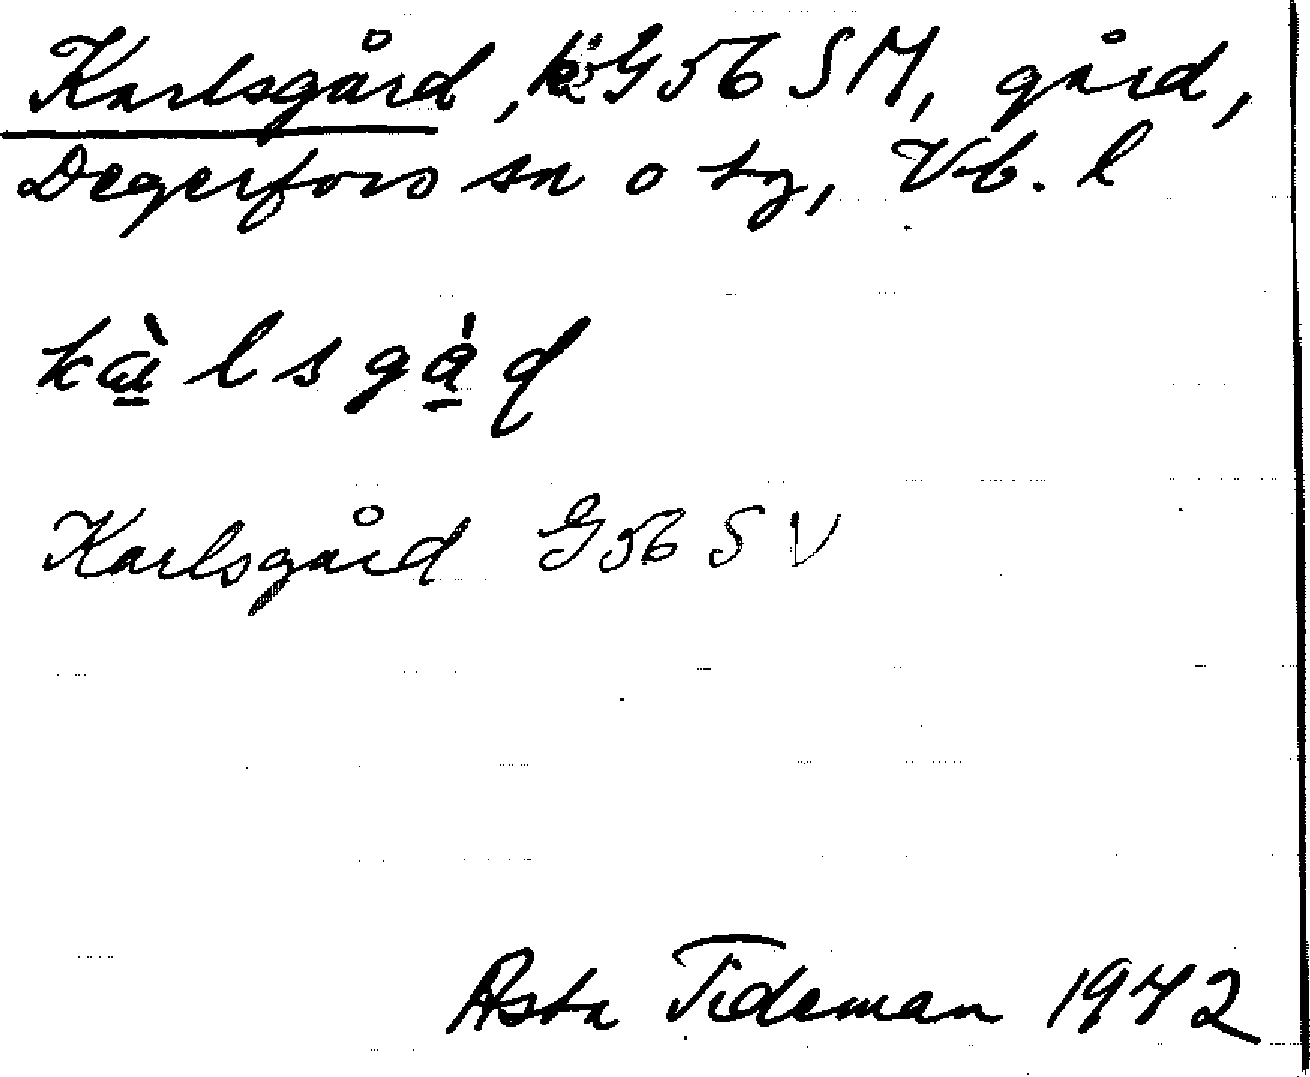 Karlsgård, G56 SM, gård,
Degerfors sn o tg, Vb. l
kàlsgàḍ
Karlsgård G56 S V
Asta Tideman 1942